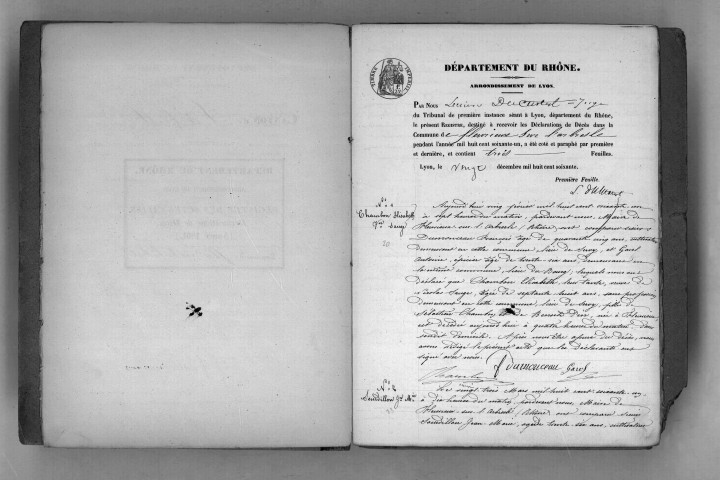 TIMBRE IMPERIAL
DÉPARTEMENT DU RHÔNE.
ARRONDISSEMENT DE LYON.
PAR NOUS Lucien Ducurtyl Juge
du Tribunal de première instance séant à Lyon, département du Rhône,
le présent REGISTRE, destiné à recevoir les Déclarations de Décès dans la
Commune de fleurieux sur l'arbresle
pendant l'année mil huit cent soixante-un, a été coté et paraphé par première
et dernière, et contient trois Feuilles.
Lyon, le vingt décembre mil huit cent soixante.
Première Feuille.
N° 1
Chambon Elisabeth
Vve
20
Aujourd'hui cinq février mil huit cent soixante un
à sept heures du matin, pardevant nous, Maire de
Fleurieux sur l'Arbresle (Rhône), sont comparus sieurs
Dumonceau François âgé de quarante cinq ans, cultivateur
demeurant en cette commune, lieu de , et Garel
Antoine, épicier âgé de trente six ans, demeurant en
la même commune, lieu du Bourg, lesquels nous ont
déclaré que Chambon Elisabeth, leur tante, veuve de
Nicolas , âgée de septante huit ans, sans profession
demeurant en cette commune, lieu de , fille de
Sébastien Chambon et de Benoite , née à Fleurieux
est décédée aujourd'hui à quatre heures du matin dans
domicile. Après nous être assuré du décès, nous
avons rédigé le présent acte que les déclarants ont
signé avec nous.
Dumonceau Garel
N° 2
Jn Mie
Le vingt trois Mars mil huit cent soixante un
à dix heures du matin, pardevant nous, Maire de
Fleurieux sur l'Arbresle (Rhône) ont comparu sieurs
Jean Marie, âgé de trente ans, cultivateur